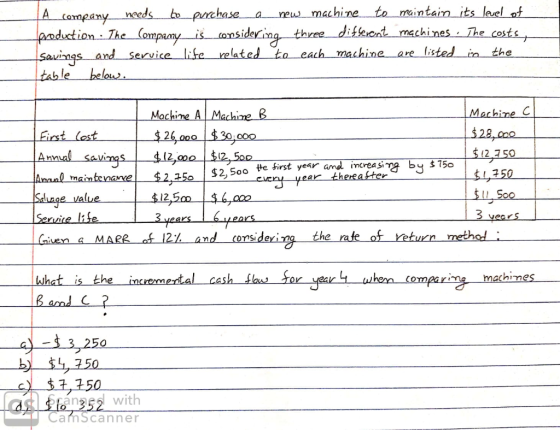 A company needs to purchase a new machine to maintain its level of
production. The Company is considering three different machines. The costs,
savings and service life related to each machine are listed in the
table below.
Machine A Machine B Machine C
First Cost $26,000 $30,000 $28,000
Annual savings $12,000 $12,500 $12,750
Annual maintenance $2,750 $2,500 the first year and increasing by $750 every year thereafter $1,750
Salvage value $12,500 $6,000 $11,500
Service life 3 years 6 years 3 years
Given a MARR of 12% and considering the rate of return method :
What is the incremental cash flow for year 4 when comparing machines
B and C ?
a) -$3,250
b) $4,750
c) $7,750
d) $10,352
CS Scanned with
CamScanner